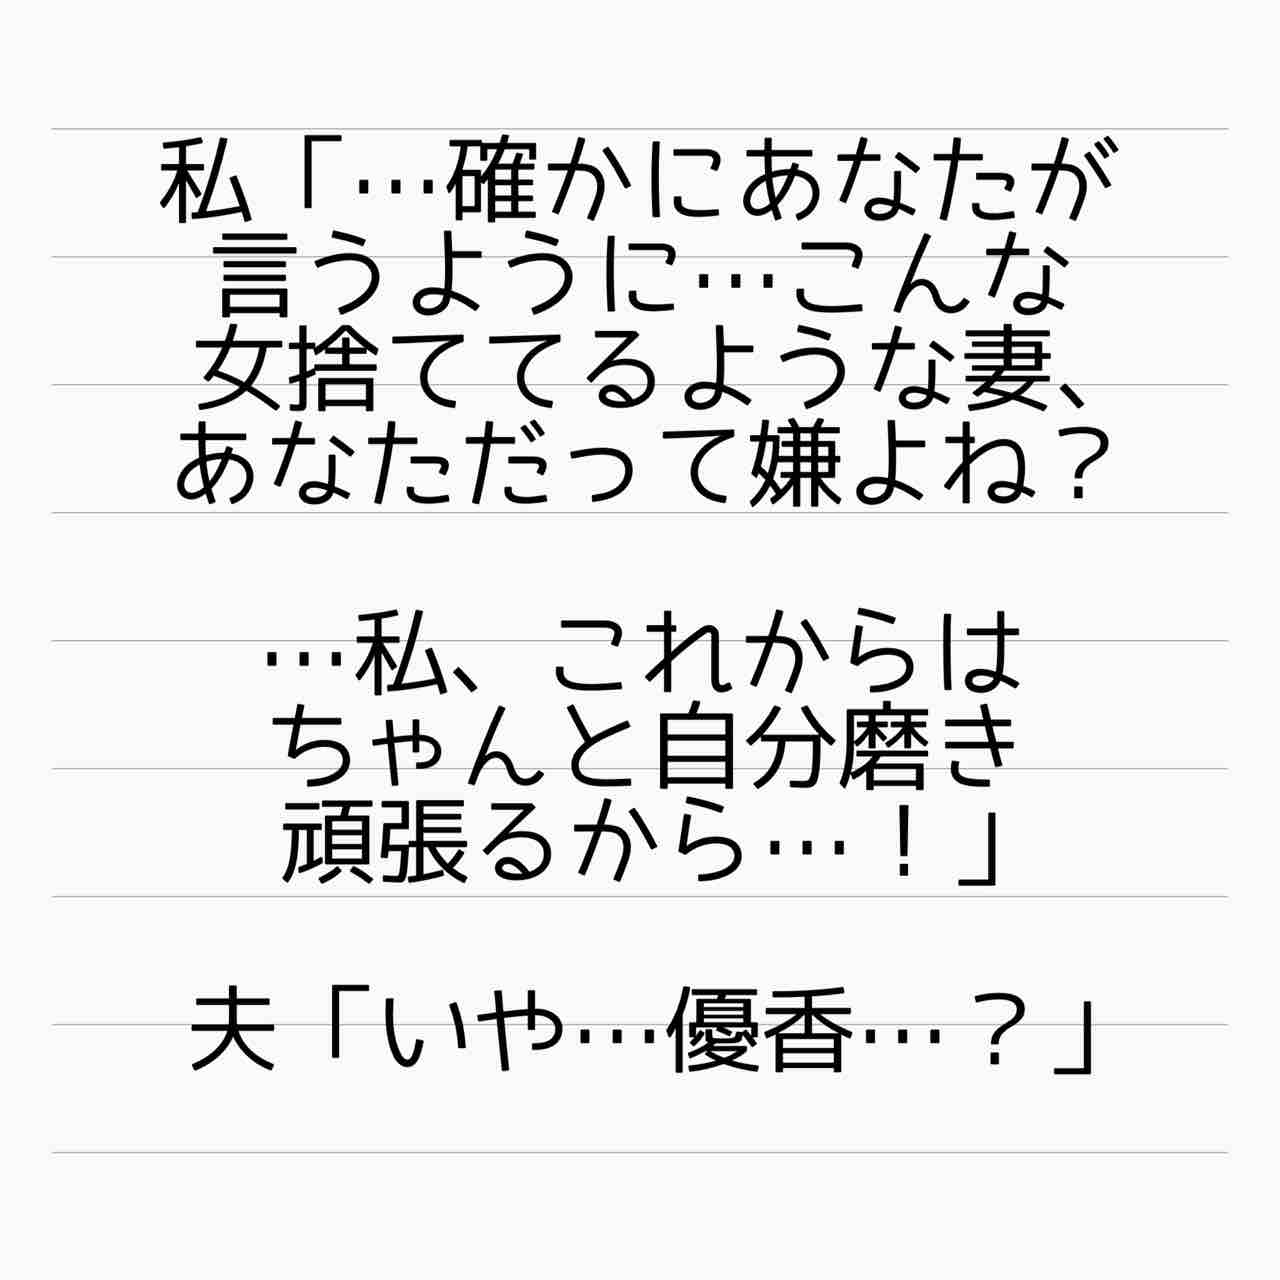 私「…確かにあなたが
言うように…こんな
女捨ててるような妻、
あなただって嫌よね？
…私、これからは
ちゃんと自分磨き
頑張るから…！」
夫「いや…優香…？」